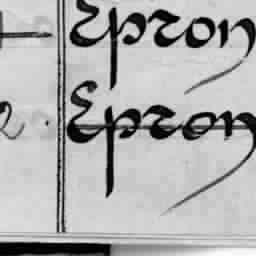 Epron
2. Epron